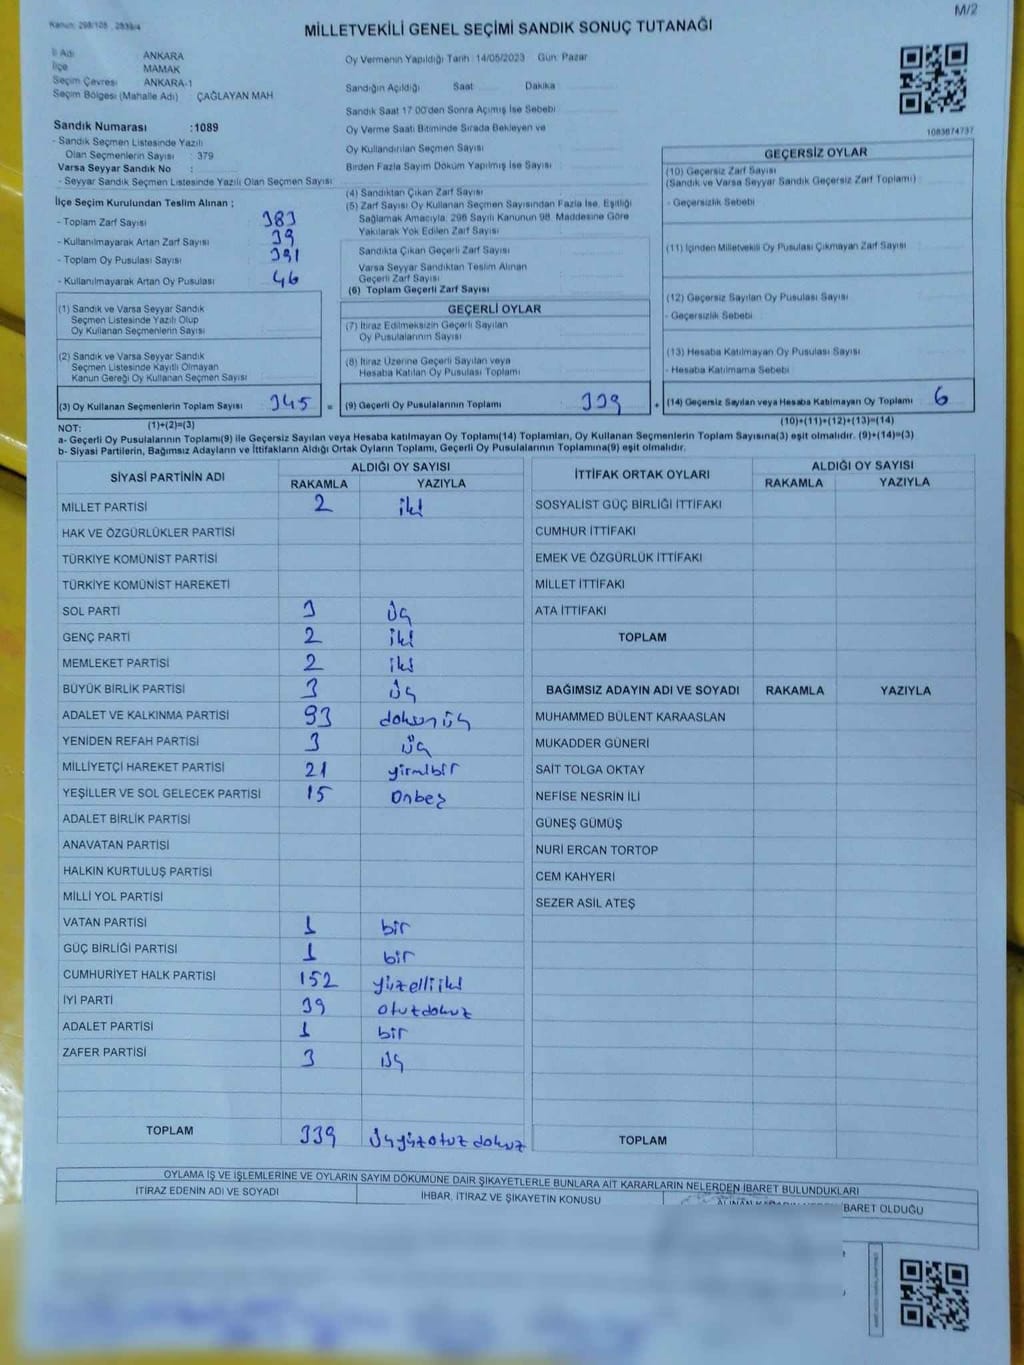 M/2
MİLLETVEKİLİ GENEL SEÇİMİ SANDIK SONUÇ TUTANAĞI
İl Adı ANKARA
İlçe MAMAK
Seçim Çevresi ANKARA-1
Seçim Bölgesi (Mahalle Adı) : ÇAĞLAYAN MAH
Sandık Numarası :1089
- Sandık Seçmen Listesinde Yazılı
Olan Seçmenlerin Sayısı : 379
Varsa Seyyar Sandık No :
- Seyyar Sandık Seçmen Listesinde Yazılı Olan Seçmen Sayısı:
İlçe Seçim Kurulundan Teslim Alınan ;
- Toplam Zarf Sayısı 383
- Kullanılmayarak Artan Zarf Sayısı 39
- Toplam Oy Pusulası Sayısı 391
- Kullanılmayarak Artan Oy Pusulası 46
(1) Sandık ve Varsa Seyyar Sandık
Seçmen Listesinde Yazılı Olup
Oy Kullanan Seçmenlerin Sayısı
(2) Sandık ve Varsa Seyyar Sandık
Seçmen Listesinde Kayıtlı Olmayan
Kanun Gereği Oy Kullanan Seçmen Sayısı
(3) Oy Kullanan Seçmenlerin Toplam Sayısı 345 =
(1)+(2)=(3)
Oy Vermenin Yapıldığı Tarih : 14/05/2023 Gün: Pazar
Sandığın Açıldığı Saat Dakika
Sandık Saat 17:00'den Sonra Açımış İse Sebebi
Oy Verme Saati Bitiminde Sırada Bekleyen ve
Oy Kullandırılan Seçmen Sayısı
Birden Fazla Sayım Döküm Yapılmış İse Sayısı
(4) Sandıktan Çıkan Zarf Sayısı
(5) Zarf Sayısı Oy Kullanan Seçmen Sayısından Fazla İse, Eşitliği
Sağlamak Amacıyla 298 Sayılı Kanunun 98. Maddesine Göre
Yakılarak Yok Edilen Zarf Sayısı
Sandıkta Çıkan Geçerli Zarf Sayısı
Varsa Seyyar Sandıktan Teslim Alınan
Geçerli Zarf Sayısı
(6) Toplam Geçerli Zarf Sayısı
GEÇERLİ OYLAR
(7) İtiraz Edilmeksizin Geçerli Sayılan
Oy Pusulalarının Sayısı
(8) İtiraz Üzerine Geçerli Sayılan veya
Hesaba Katılan Oy Pusulası Toplamı
(9) Geçerli Oy Pusulalarının Toplamı 339 +
1083674737
GEÇERSİZ OYLAR
(10) Geçersiz Zarf Sayısı
(Sandık ve Varsa Seyyar Sandık Geçersiz Zarf Toplamı)
- Geçersizlik Sebebi
(11) İçinden Milletvekili Oy Pusulası Çıkmayan Zarf Sayısı
(12) Geçersiz Sayılan Oy Pusulası Sayısı
- Geçersizlik Sebebi
(13) Hesaba Katılmayan Oy Pusulası Sayısı
- Hesaba Katılmama Sebebi
(14) Geçersiz Sayılan veya Hesaba Katılmayan Oy Toplamı 6
(10)+(11)+(12)+(13)=(14)
NOT:
a- Geçerli Oy Pusulalarının Toplamı(9) ile Geçersiz Sayılan veya Hesaba katılmayan Oy Toplamı(14) Toplamları, Oy Kullanan Seçmenlerin Toplam Sayısına(3) eşit olmalıdır. (9)+(14)=(3)
b- Siyasi Partilerin, Bağımsız Adayların ve İttifakların Aldığı Ortak Oyların Toplamı, Geçerli Oy Pusulalarının Toplamına(9) eşit olmalıdır.
SİYASİ PARTİNİN ADI ALDIĞI OY SAYISI
RAKAMLA YAZIYLA
MİLLET PARTİSİ 2 iki
HAK VE ÖZGÜRLÜKLER PARTİSİ
TÜRKİYE KOMÜNİST PARTİSİ
TÜRKİYE KOMÜNİST HAREKETİ
SOL PARTİ 3 üç
GENÇ PARTİ 2 iki
MEMLEKET PARTİSİ 2 iki
BÜYÜK BİRLİK PARTİSİ 3 üç
ADALET VE KALKINMA PARTİSİ 93 doksanüç
YENİDEN REFAH PARTİSİ 3 üç
MİLLİYETÇİ HAREKET PARTİSİ 21 yirmibir
YEŞİLLER VE SOL GELECEK PARTİSİ 15 Onbeş
ADALET BİRLİK PARTİSİ
ANAVATAN PARTİSİ
HALKIN KURTULUŞ PARTİSİ
MİLLİ YOL PARTİSİ
VATAN PARTİSİ 1 bir
GÜÇ BİRLİĞİ PARTİSİ 1 bir
CUMHURİYET HALK PARTİSİ 152 yüzelliiki
İYİ PARTİ 39 otuzdokuz
ADALET PARTİSİ 1 bir
ZAFER PARTİSİ 3 üç
TOPLAM 339 üçyüzotuzdokuz
İTTİFAK ORTAK OYLARI ALDIĞI OY SAYISI
RAKAMLA YAZIYLA
SOSYALİST GÜÇ BİRLİĞİ İTTİFAKI
CUMHUR İTTİFAKI
EMEK VE ÖZGÜRLÜK İTTİFAKI
MİLLET İTTİFAKI
ATA İTTİFAKI
TOPLAM
BAĞIMSIZ ADAYIN ADI VE SOYADI RAKAMLA YAZIYLA
MUHAMMED BÜLENT KARAASLAN
MUKADDER GÜNERİ
SAİT TOLGA OKTAY
NEFİSE NESRİN İLİ
GÜNEŞ GÜMÜŞ
NURİ ERCAN TORTOP
CEM KAHYERİ
SEZER ASİL ATEŞ
TOPLAM
OYLAMA İŞ VE İŞLEMLERİNE VE OYLARIN SAYIM DÖKÜMÜNE DAİR ŞİKAYETLERLE BUNLARA AİT KARARLARIN NELERDEN İBARET BULUNDUKLARI
İTİRAZ EDENİN ADI VE SOYADI İHBAR, İTİRAZ VE ŞİKAYETİN KONUSU İBARET OLDUĞU